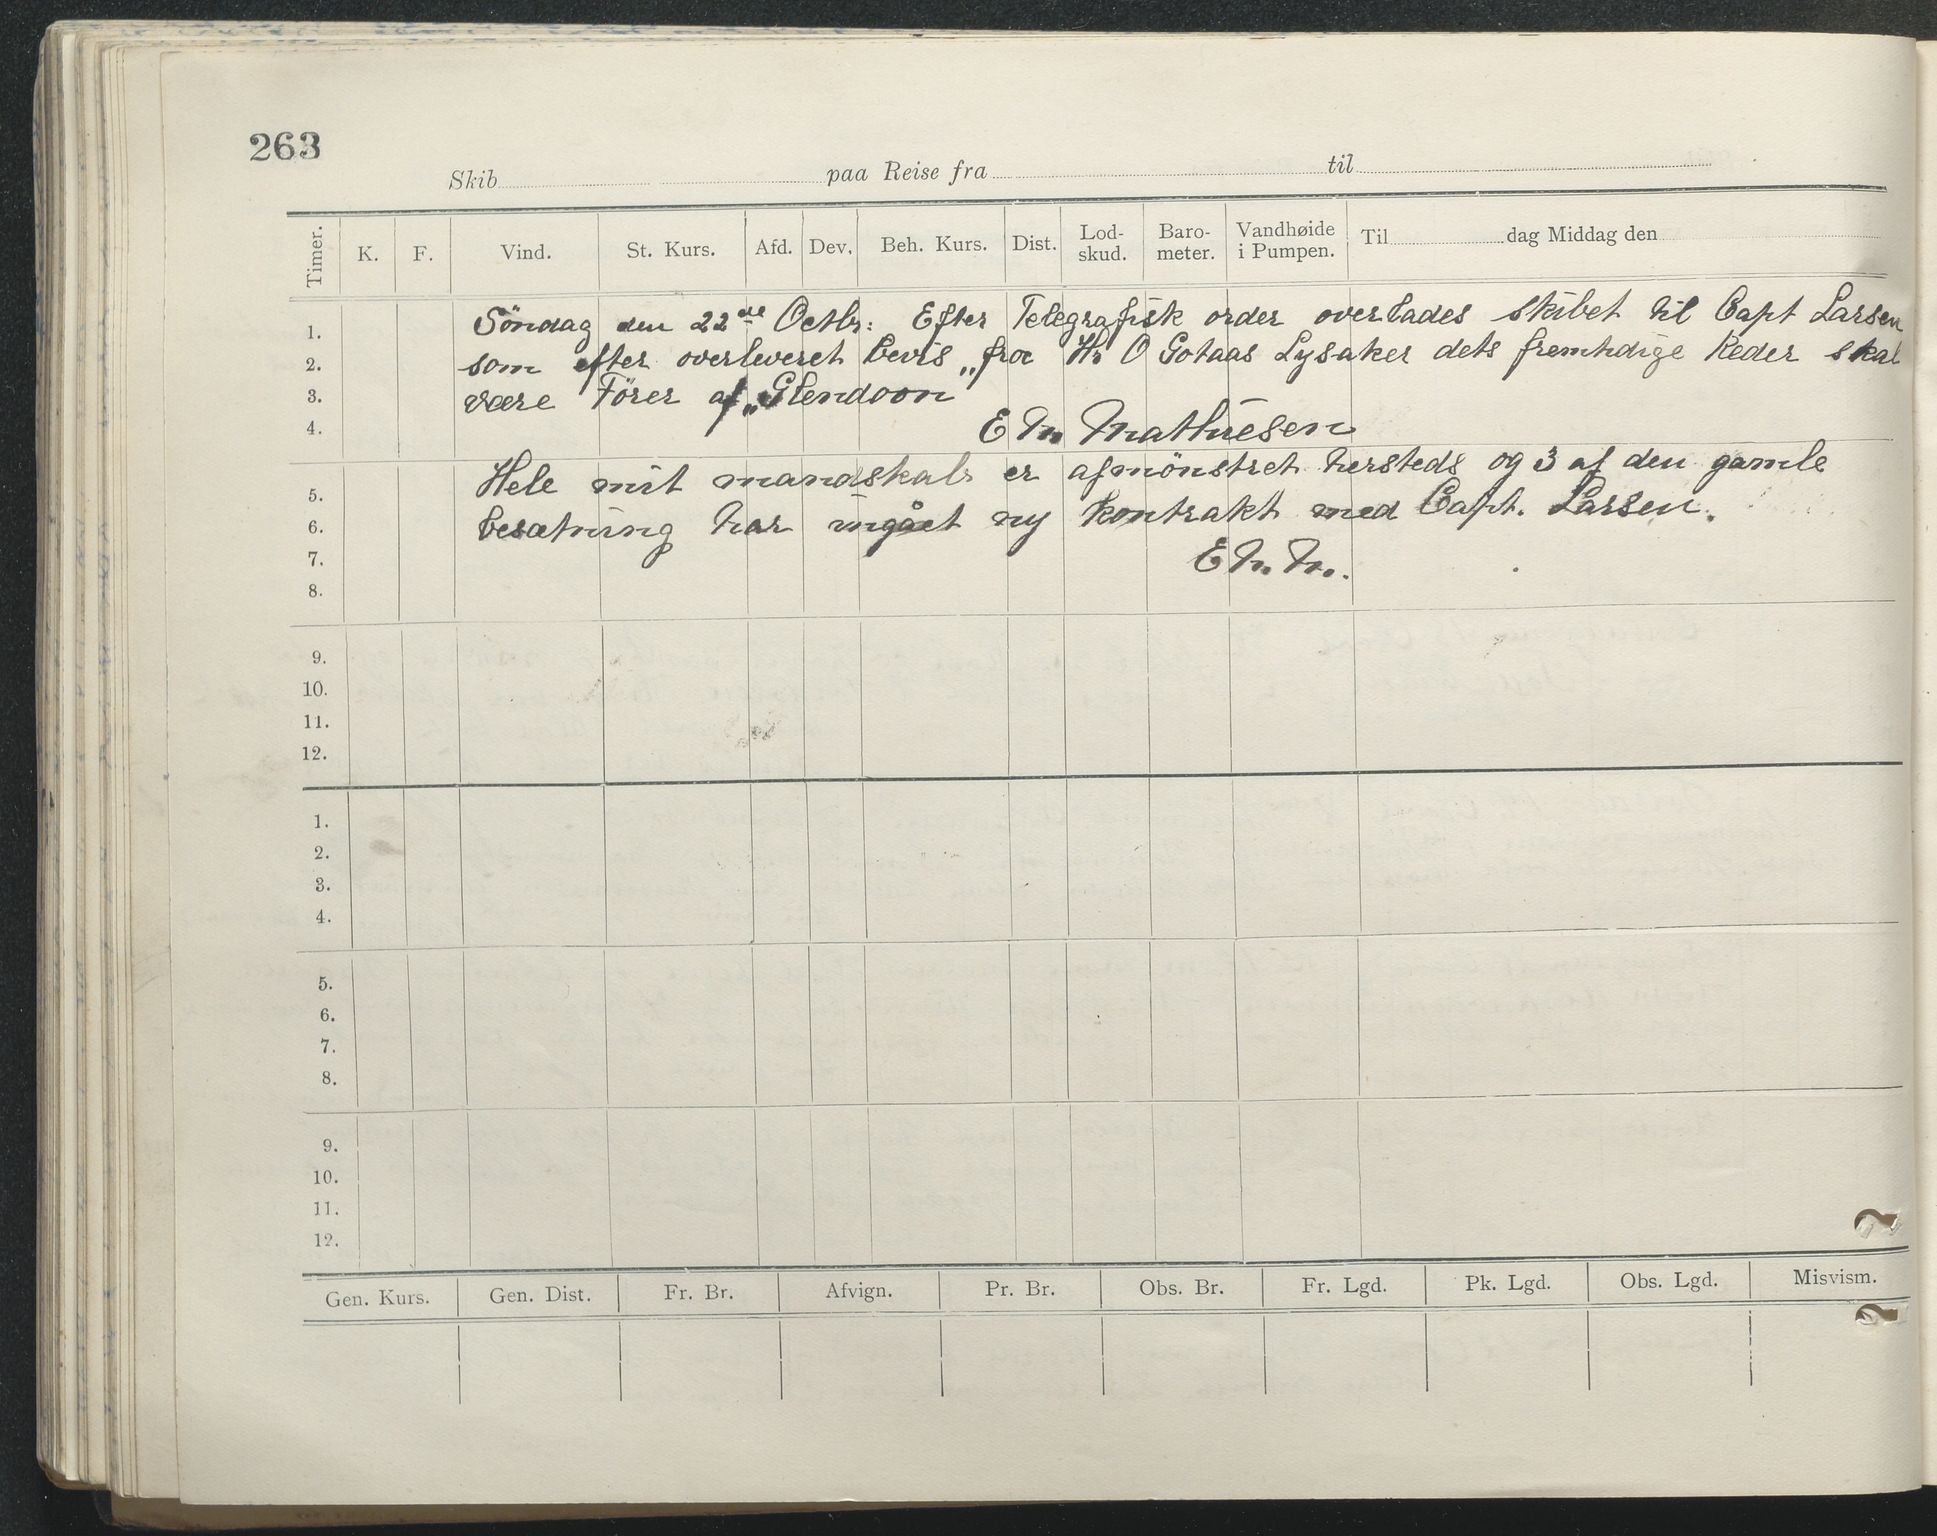 263
Skib paa Reise fra til
Timer. K. F. Vind. St. Kurs. Afd. Dev. Beh. Kurs. Dist. Lod-skud. Baro-meter. Vandhøide i Pumpen. Til dag Middag den
1. Söndag den 22de Octbr: Efter Telegrafisk order overlades skibet til Capt Larsen
2. som efter overleveret bevis „fra Hr O Gotaas Lysaker dets fremtidige Reder skal
3. være Förer af „Glendoon"
4. E M Mathiesen
5. Hele mit mandskab er afmönstret hersteds og 3 af den gamle
6. besætning har ingået ny kontrakt med Capt. Larsen.
7. E M. M.
8.
9.
10.
11.
12.
1.
2.
3.
4.
5.
6.
7.
8.
9.
10.
11.
12.
Gen. Kurs. Gen. Dist. Fr. Br. Afvign. Pr. Br. Obs. Br. Fr. Lgd. Pk. Lgd. Obs. Lgd. Misvism.